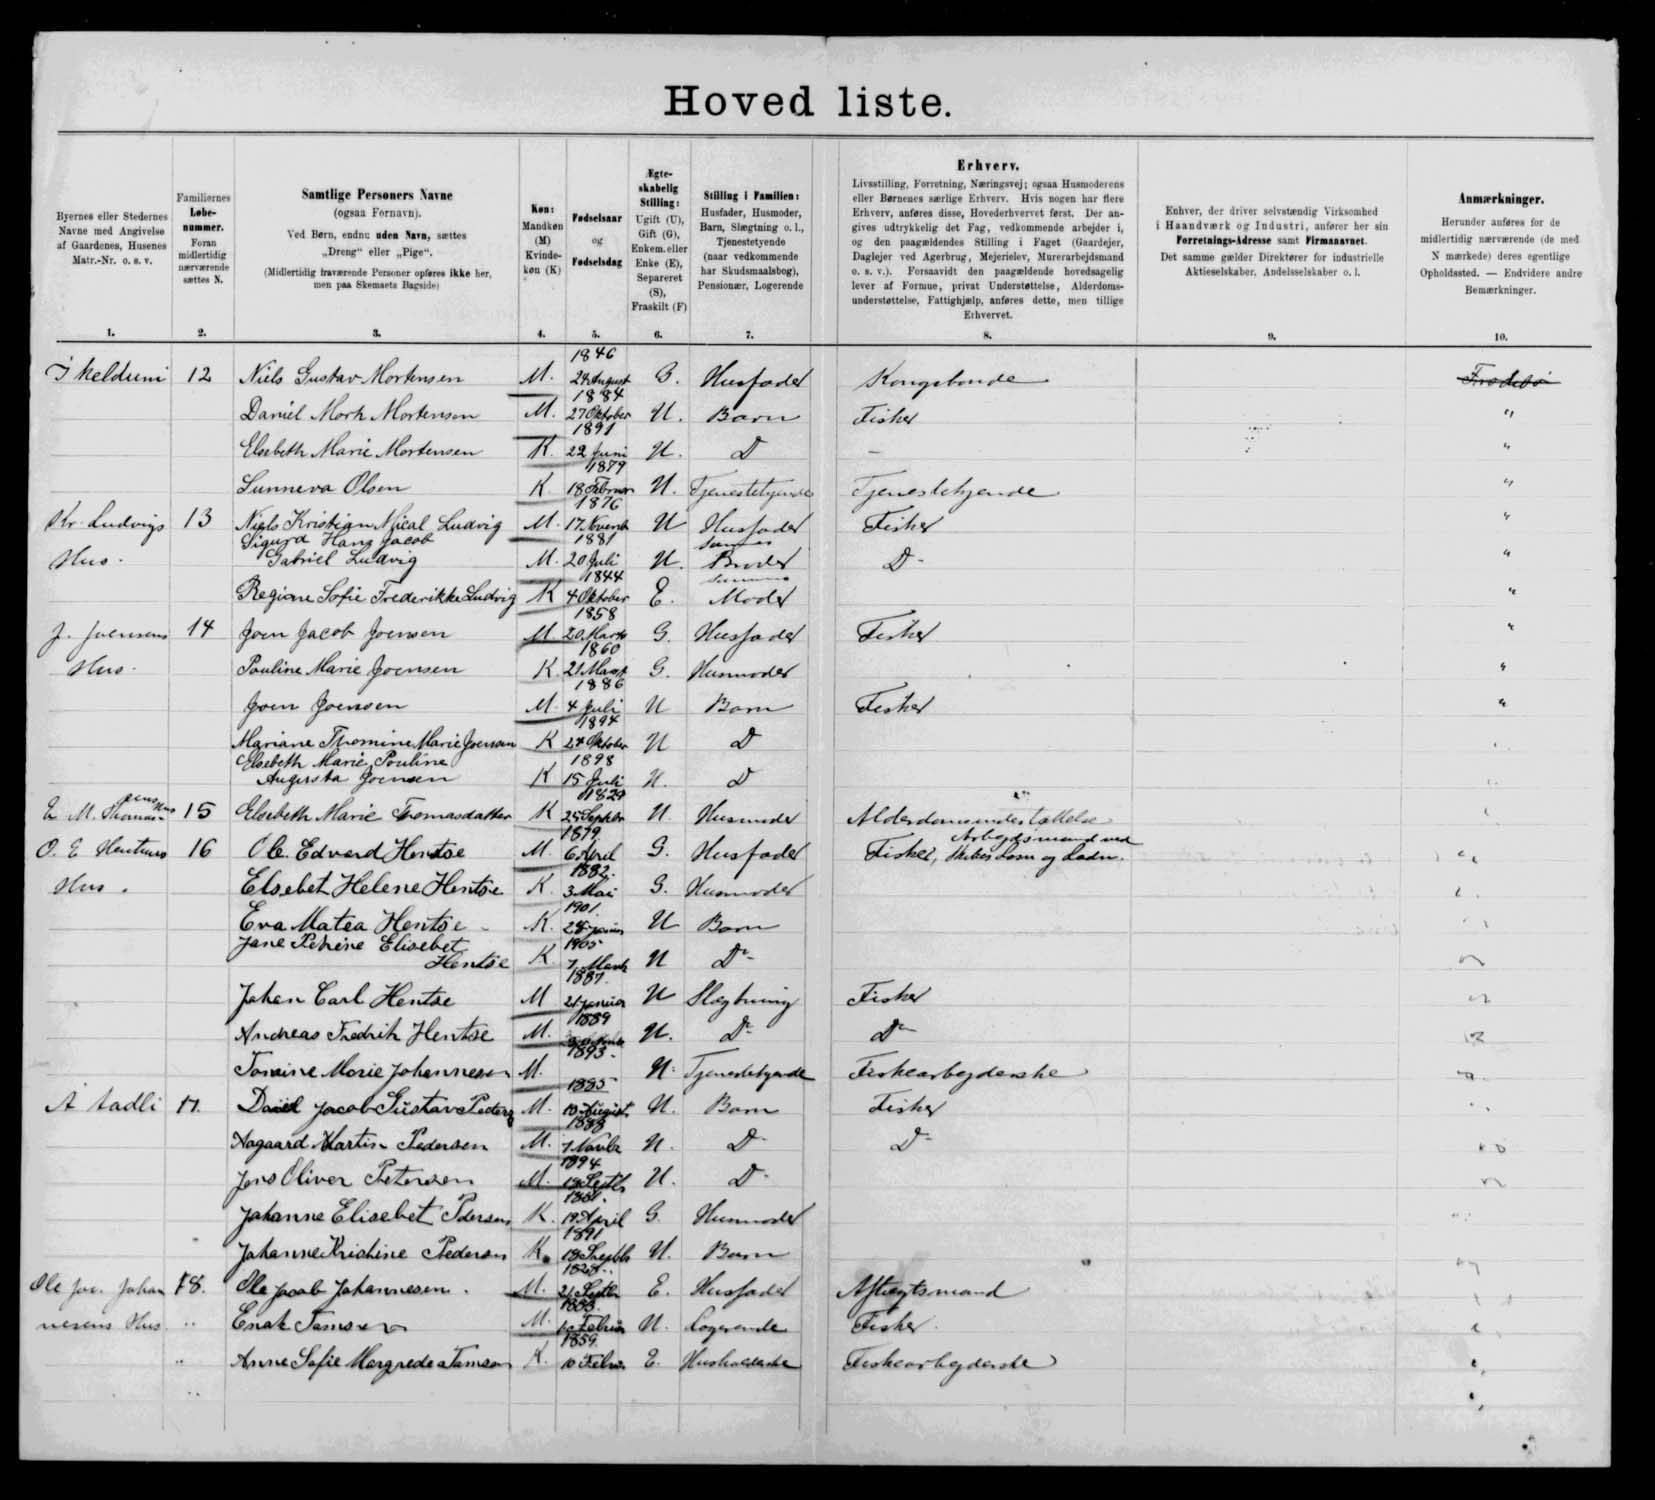 Hoved liste.
Byernes eller Stedernes Navne med Angivelse af Gaardenes, Husenes Matr.-Nr. o. s. v.
Familiernes Løbenummer. Foran midlertidig nærværende sættes N.
Samtlige Personers Navne
(ogsaa Fornavn).
Ved Børn, endnu uden Navn, sættes „Dreng" eller „Pige".
(Midlertidig fraværende Personer opføres ikke her, men paa Skemaets Bagside)
Køn: Mandkøn (M) Kvindekøn (K)
Fødselsaar og Fødselsdag
Ægteskabelig Stilling: Ugift (U), Gift (G), Enkem. eller Enke (E), Separeret (S), Fraskilt (F)
Stilling i Familien: Husfader, Husmoder, Barn, Slægtning o. l., Tjenestetyende (naar vedkommende har Skudsmaalsbog), Pensionær, Logerende
Erhverv.
Livsstilling, Forretning, Næringsvej; ogsaa Husmoderens eller Børnenes særlige Erhverv. Hvis nogen har flere Erhverv, anføres disse, Hovederhvervet først. Der angives udtrykkelig det Fag, vedkommende arbejder i, og den paagældendes Stilling i Faget (Gaardejer, Daglejer ved Agerbrug, Mejerielev, Murerarbejdsmand o. s. v.). Forsaavidt den paagældende hovedsagelig lever af Formue, privat Understøttelse, Alderdomsunderstøttelse, Fattighjælp, anføres dette, men tillige Erhvervet.
Enhver, der driver selvstændig Virksomhed i Haandværk og Industri, anfører her sin Forretnings-Adresse samt Firmanavnet. Det samme gælder Direktører for industrielle Aktieselskaber, Andelsselskaber o. l.
Anmærkninger.
Herunder anføres for de midlertidig nærværende (de med N mærkede) deres egentlige Opholdssted. — Endvidere andre Bemærkninger.
1. 2. 3. 4. 5. 6. 7. 8. 9. 10.
I kelduni 12 Niels Gustav Mortensen M. 1846 24 August G. Husfader Kongsbonde
Daniel Mork Mortensen M. 1884 27 Oktober U. Barn Fisker "
Elsebeth Marie Mortensen K. 1891 22 Juni U. D - "
Sunneva Olsen K. 1879 18 Februar U. Tjenestetyende Tjenestetyende "
Kr. Ludvigs 13 Niels Kristian Mical Ludvig M. 1876 17 Novemb U Husfader Fisker "
Hus. Sigurd Hans Jacob Gabriel Ludvig M. 1881 20 Juli U. Sammes Broder D- "
Regine Sofie Frederikke Ludvig K 1844 4 Oktober E. Sammes Moder "
J. Joensens 14 Joen Jacob Joensen M. 1858 20 Marts G. Husfader Fisker "
Hus. Pauline Marie Joensen K. 1860 21 G. Husmoder "
Joen Joensen M. 1886 4 Juli U Barn Fisker "
Mariane Thomine Marie Joensen K 1894 24 Oktober U D
Elsebeth Marie Pouline Augusta Joensen K 1898 15 Juli U. D
E. M. 15 Elsebeth Marie Tomasdatter K 1829 25 U. Husmoder Alderdomsunderstøttelse
O. E Hentses 16 Ole Edvard Hentse M. 1879 6 April G. Husfader Fisker, Arbejdsmand ved Skibes Losn og Ladn.
Hus. Elsebet Helene Hentse K. 1882. 3 Mai G. Husmoder
Eva Matea Hentse K. 1901. U Barn
Jane Petrine Elisebet Hentse K 1905 7 Marts U D-
Johan Carl Hentse M 1887. 21 Januar U Slægtning Fisker
Andreas Fredrik Hentse M. 1889 U. D- D-
Marie Johannesen M. 1893. U. Tjenestetyende Fiskearbejderske
17. Daniel Jacob Gustav Peders M. 1885 10 August U. Barn Fisker
Aagaard Martin Pedersen M. 1888 7 U. D D-
Jens Oliver Petersen M. 1894 U. D-
Johanne Elisebet K. 19 April G. Husmoder
Johanne Kristine Pedersen K. 1891 18 U. Barn
Ole Jac. Johan 18. Ole Jacob Johannesen. M. 21 E. Husfader Aftægtsmand
nesens Hus " M. Februar U. Logerende Fisker.
" Anne Sofie Margrede K. 1859 10 E. Husholderske Fiskearbejderske
"